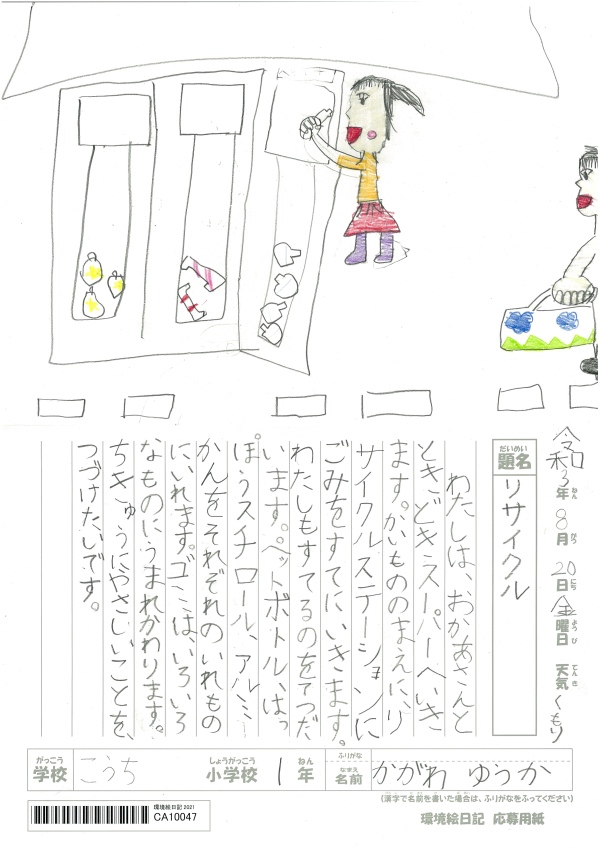 令和3年8月20日金曜日 天気くもり
ねん
がつ
にち
ようび
てんき
だいめい
題名
リサイクル
わたしは、おかあさんと
ときどきスーパーへいき
ます。かいもののまえに、リ
サイクルステーションに
ごみをすてにいきます。
わたしもすてるのをてつだ
います。ペットボトル、はっ
ぽうスチロール、アルミ
かんをそれぞれのいれもの
にいれます。ゴミは、いろいろ
なものにうまれかわります。
ちきゅうにやさしいことを、
つづけたいです。
がっこう
学校
こうち
しょうがっこう
小学校
1
ねん
年
ふりがな
なまえ
名前
かがわ ゆうか
(漢字で名前を書いた場合は、ふりがなをふってください)
環境絵日記 2021
CA10047
環境絵日記 応募用紙